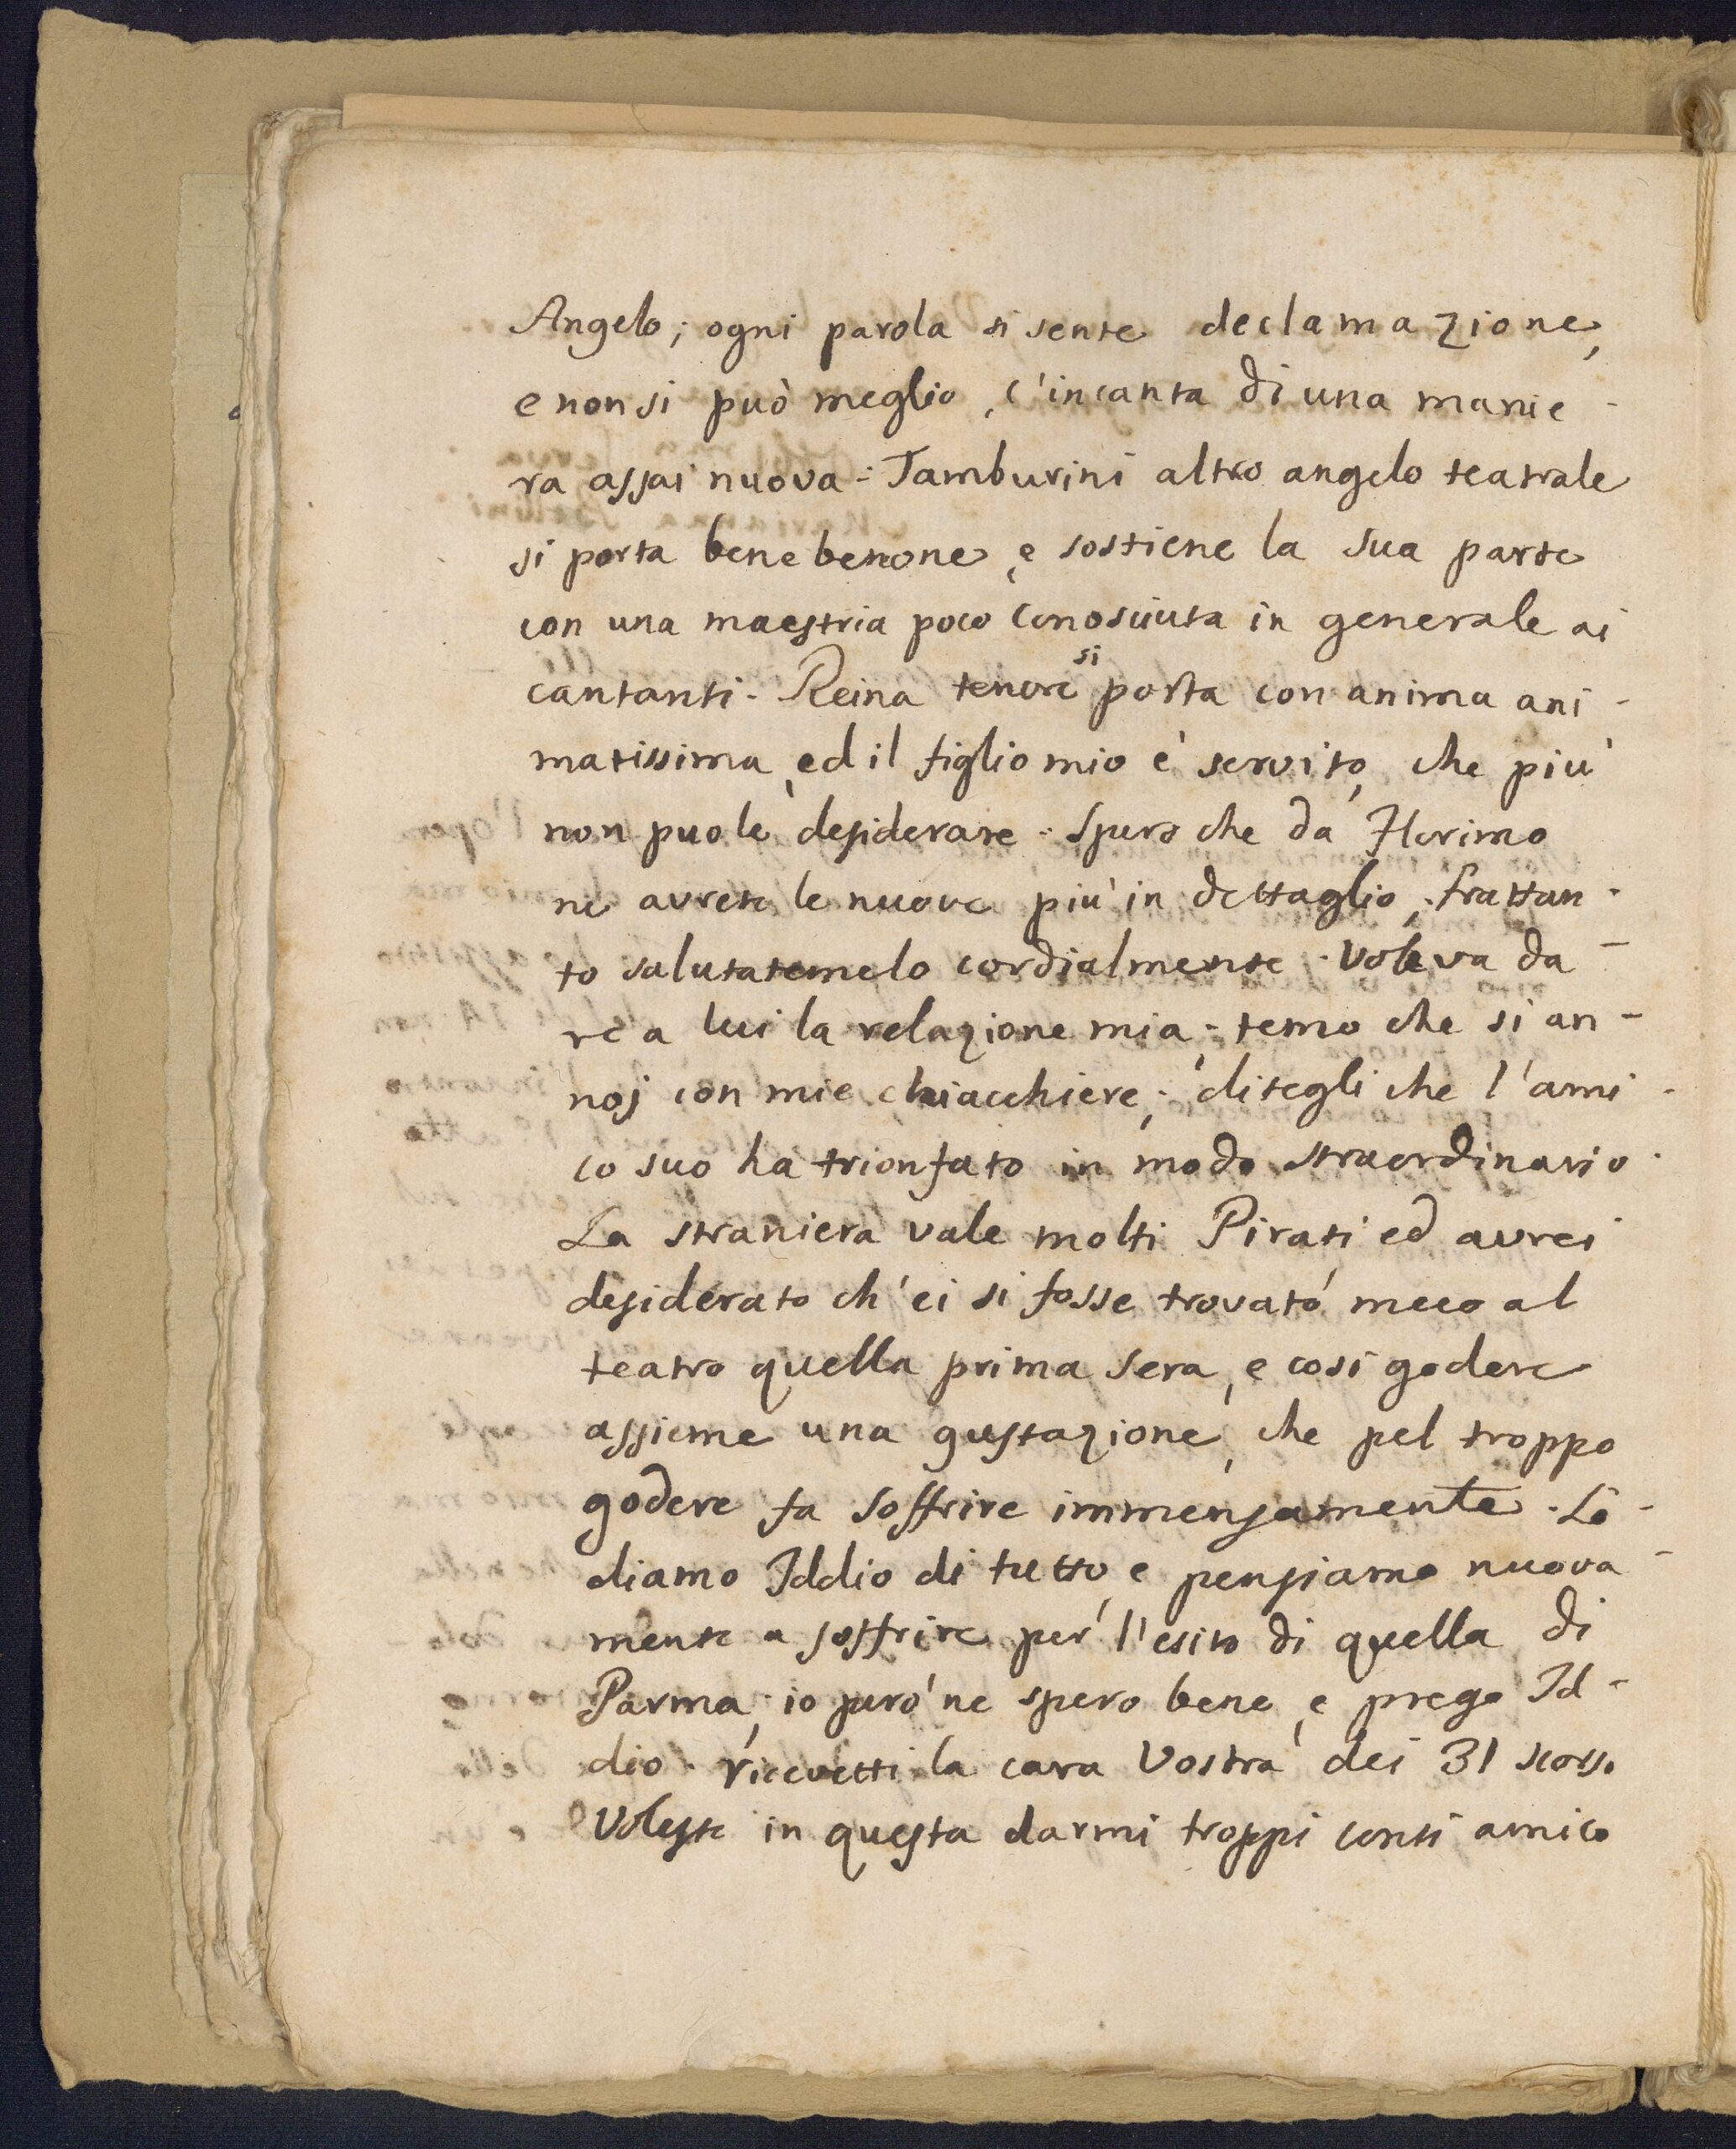 Angelo; ogni parola si sente declamazione,
e non si può meglio, c'incanta di una manie-
ra assai nuova: Tamburini altro angelo teatrale
si porta bene benone, e sostiene la sua parte
con una maestria poco conosciuta in generale ai
cantanti. Reina tenore si porta con anima ani-
matissima, ed il figlio mio è servito, che più
non puole desiderare. Spero che da Florimo
ne avrete le nuove più in dettaglio; frattan-
to salutatemelo cordialmente. Voleva da-
re a lui la relazione mia; temo che si an-
noj con mie chiacchiere; ditegli che l'ami-
co suo ha trionfato in modo straordinario.
La straniera vale molti Pirati ed avrei
desiderato ch'ei si fosse trovato meco al
teatro quella prima sera, e così godere
assieme una gustazione, che pel troppo
godere fa soffrire immensamente. Lo-
diamo Iddio di tutto, e pensiamo nuova-
mente a soffrire per l'esito di quella di
Parma, io però ne spero bene, e prego Id-
dio. ricevetti la cara Vostra dei 31 scorso
Voleste in questa darmi troppi conti amico